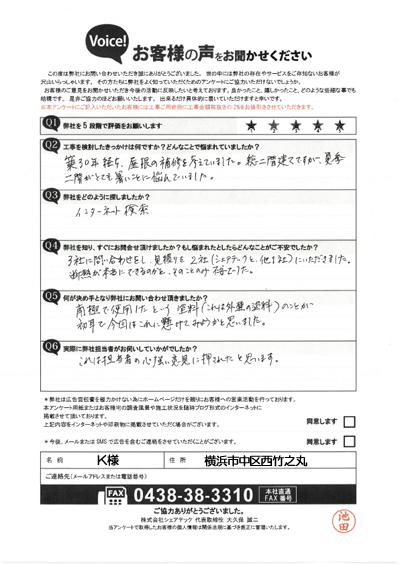 Voice!
お客様の声をお聞かせください
この度は弊社にお問い合わせいただき誠にありがとうございます。世の中には弊社の存在やサービスをご存知ないお客様が
沢山いらっしゃいます。その方たちに弊社をよく知っていただくためのアンケートにご協力いただけないでしょうか。
お客様のご意見をお聞かせいただき今後の活動に反映したいと考えております。良かったこと、嬉しかったこと、どのような些細な事でも
結構です。是非ご協力のほどお願いいたします。出来るだけ具体的に書いていただけますと幸いです。
Q1 弊社を5段階で評価をお願いします ★ ★ ★ ★ ★
Q2 工事を検討したきっかけは何ですか?どんなことで悩まれていましたか?
築30年経ち、屋根の補修を考えていました。総二階建てですが、夏季
二階がとても暑いことに悩んでいました。
Q3 弊社をどのように探しましたか?
インターネット検索
Q4 弊社を知り、すぐにお問合せ頂けましたか?もし悩まれたとしたらどんなことがご不安でしたか?
3社に問い合わせをし、見積りを2社(シェアテックと、他1社)にいただきました。
断熱が本当にできるのかと、そのことのみ不安でした。
Q5 何が決め手となり弊社にお問い合わせ頂きましたか?
南極で使用したという塗料(これは外壁の塗料)のことが
初耳で今回はこれに懸けてみようかと思いました。
Q6 実際に弊社担当者がお伺いしていかがでしたか?
これは担当者の心強い意見に押されたと思います。
*弊社は広告宣伝費を極力かけない為にホームページだけを頼りにお客様への営業活動を行っております。
本アンケート用紙またお客様宅の調査風景や施工状況を随時ブログ形式のインターネットに
掲載させて頂いております。
上記内容をインターネットや印刷物に掲載させていただく場合がございます。 同意します
*今後、メールまたは SMS で広告を含むご連絡をさせていただくことがございます。 同意します
名前 K様 住所 横浜市中区西竹之丸
ご連絡先(メールアドレスまたは電話番号)
FAX 0438-38-3310 本社直通 FAX 番号
ご協力ありがとうございました。
株式会社シェアテック 代表取締役 大久保 誠二
当アンケートで取得したお客様の個人情報は関係法規に基づき厳正に管理いたします。
池田